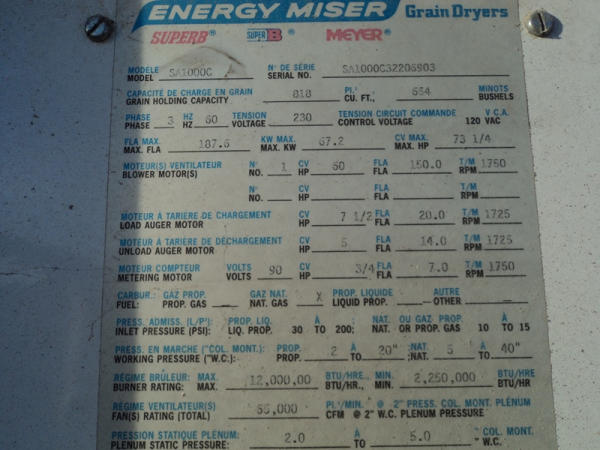 ENERGY MISER Grain Dryers
SUPERB® SUPER B® MEYER®
MODÈLE N° DE SÉRIE
MODEL SA1000C SERIAL NO. SA1000C32206903
CAPACITÉ DE CHARGE EN GRAIN PI.³ MINOTS
GRAIN HOLDING CAPACITY 818 CU. FT., 654 BUSHELS
PHASE HZ TENSION TENSION CIRCUIT COMMANDE V.C.A.
PHASE 3 HZ 60 VOLTAGE 230 CONTROL VOLTAGE 120 VAC
FLA MAX. KW MAX. CV MAX.
MAX. FLA 187.6 MAX. KW 67.2 MAX. HP 73 1/4
MOTEUR(S) VENTILATEUR N° CV FLA T/M
BLOWER MOTOR(S) NO. 1 HP 60 FLA 150.0 RPM 1750
N° CV FLA T/M
NO. HP FLA RPM
MOTEUR À TARIÈRE DE CHARGEMENT CV FLA T/M
LOAD AUGER MOTOR HP 7 1/2 FLA 20.0 RPM 1725
MOTEUR À TARIÈRE DE DÉCHARGEMENT CV FLA T/M
UNLOAD AUGER MOTOR HP 5 FLA 14.0 RPM 1725
MOTEUR COMPTEUR VOLTS CV FLA T/M
METERING MOTOR VOLTS 90 HP 3/4 FLA 7.0 RPM 1750
CARBUR.: GAZ PROP. GAZ NAT. PROP. LIQUIDE AUTRE
FUEL: PROP. GAS NAT. GAS X LIQUID PROP. OTHER
PRESS. ADMISS. (L/P²): PROP. LIQ. À NAT. OU GAZ PROP. À
INLET PRESSURE (PSI): LIQ. PROP. 30 TO 200; NAT. OR PROP. GAS 10 TO 15
PRESS. EN MARCHE ("COL. MONT.): PROP. À NAT. À
WORKING PRESSURE ("W.C.): PROP. 2 TO 20" ;NAT. 5 TO 40"
RÉGIME BRÛLEUR: MAX. BTU/HRE, MIN. BTU/HRE
BURNER RATING: MAX. 12,000,00 BTU/HR., MIN. 2,250,000 BTU/HR
RÉGIME VENTILATEUR(S) PI.³/MIN. @ 2" PRESS. COL. MONT. PLÉNUM
FAN(S) RATING (TOTAL) 55,000 CFM @ 2" W.C. PLENUM PRESSURE
PRESSION STATIQUE PLÉNUM: À COL. MONT.
PLENUM STATIC PRESSURE: 2.0 TO 5.0 "W.C.